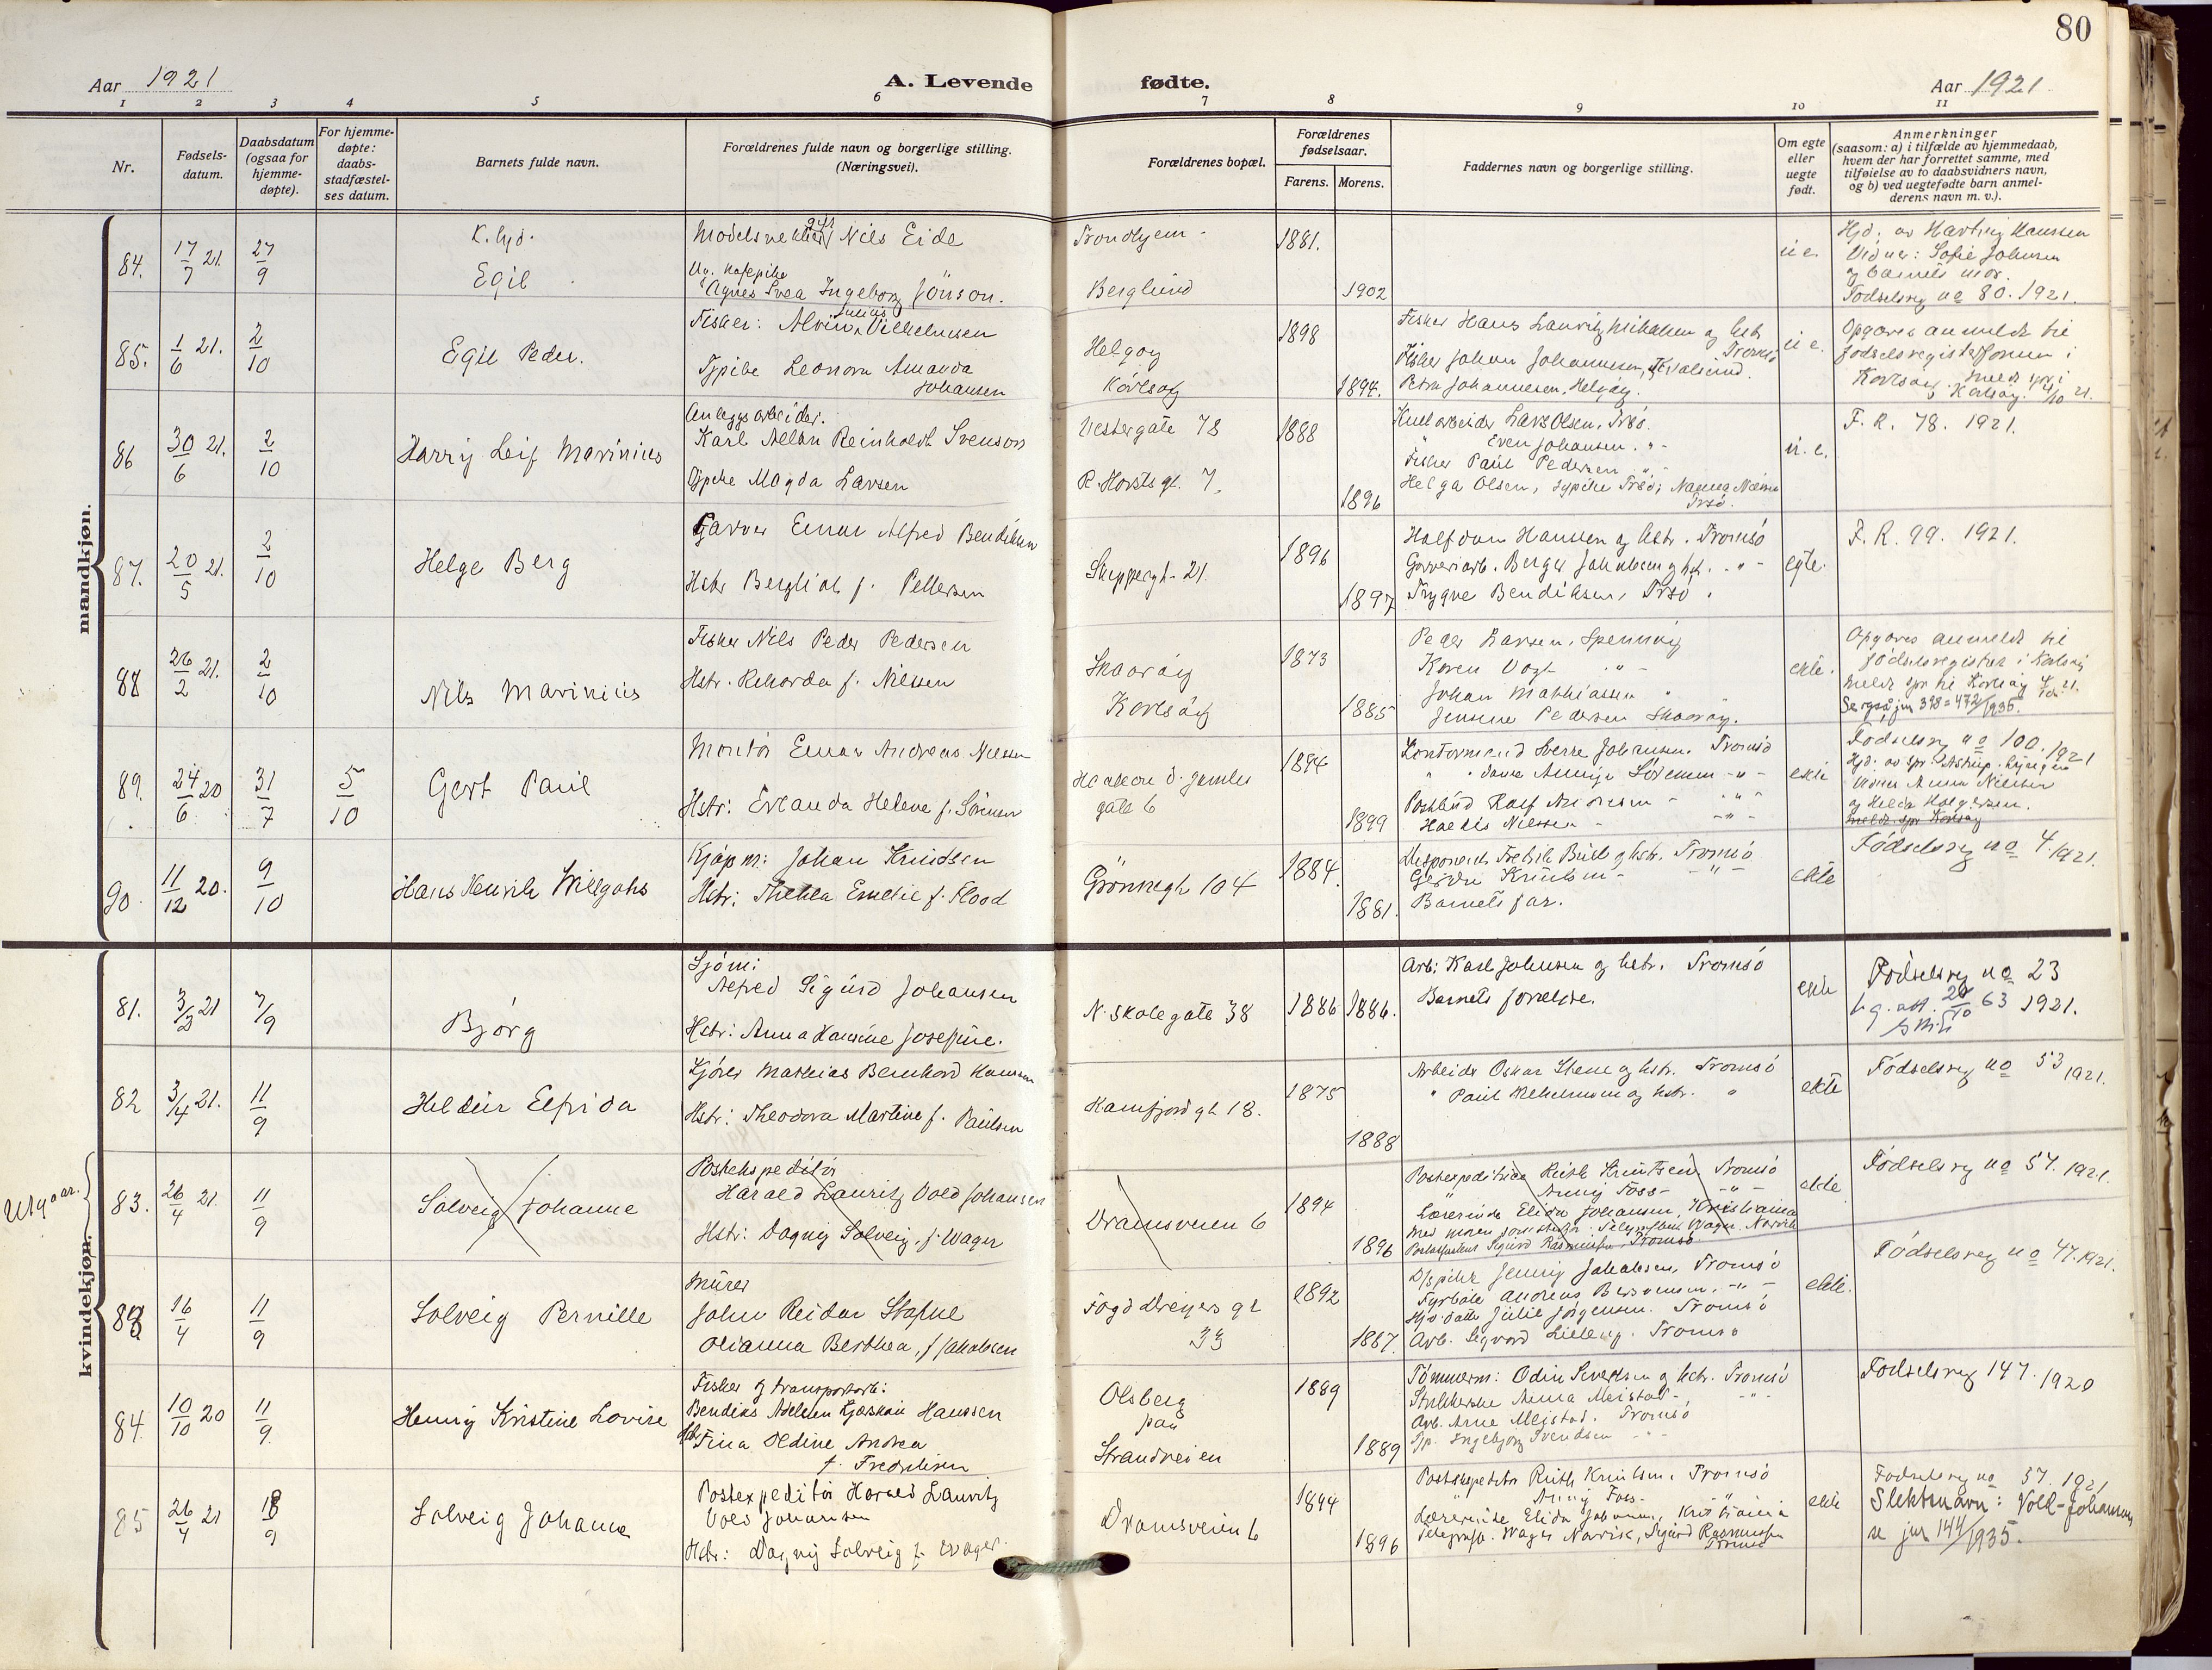 80
Aar 1921
A. Levende fødte.
Aar 1921
1 2 3 4 5 6 7 8 9 10 11
Nr.
Fødsels-
datum.
Daabsdatum
(ogsaa for
hjemme-
døpte).
For hjemme-
døpte:
daabs-
stadfæstel-
ses datum.
Barnets fulde navn.
Forældrenes fulde navn og borgerlige stilling.
(Næringsvei).
Forældrenes bopæl.
Forældrenes
fødselsaar.
Farens. Morens.
Faddernes navn og borgerlige stilling.
Om egte
eller
uegte
født.
Anmerkninger
(saasom: a) i tilfælde av hjemmedaab,
hvem der har forrettet samme, med
tilføielse av to daabsvidners navn,
og b) ved uegtefødte barn anmel-
derens navn m. v.).
mandkjøn.
84. 17/7 21. 27/9
K. hjd.
Egil
gift
Nils Eide
Agnes Svea Ingeborg Jönson.
Trondhjem -
Berglund
1881.
1902
u e.
Hjd. av Hartvig Hanssen
Vidner: Sofie Johnsen
og barnets mor.
Fødselsreg no 80. 1921.
85. 1/6 21. 2/10
Egil Peder.
Julius
Fisker: Alvin Vilhelmsen
Tjpike Leonora Amanda
Johansen
Helgøy
Karlsøy
1898
1894.
Fisker Hans Lauritz Mikalsen og hstr
Tromsø
Fisker Johan Johannesen, Kvalsund.
Petra Johannesen, Helgøy.
u e.
Opgaves anmeldt til
fødselsregisterføreren i
Karlsøy. meldt spr i
Karlsøy 4/10 21.
86 30/6 21. 2/10
Harry Leif Marinius
Anlegsarbeider.
Karl Allan Reinholdt Svenson
Tjpike Magda Larsen
Vestergate 78
R. Horsts gt. 7.
1888
1896
Kularbeider Lars Olsen, Trsø.
" Even Johansen. " -
Fisker Paul Pedersen " -
Helga Olsen, tjpike Trsø; Nanna
Trsø.
u. e.
F. R. 78. 1921.
87. 20/5 21. 2/10
Helge Berg
Garver Einar Alfred Bendiksen
Hstr Bergliot f. Pettersen
Skippergt- 21.
1896
1897
Halfdan Hanssen og hstr. Tromsø
Garveriarb. Berger Jakobsen og hst. - " -
Trygve Bendiksen, Trsø.
egte.
F. R. 99. 1921.
88 26/2 21. 2/10
Nils Marinius
Fisker Nils Peder Pedersen
Hstr. Rikarda f. Nilssen
Skaarøy
Karlsøy
1873
1885
Peder Larsen, Spenning
Karen Vogt - " -
Johan Mathiassen "
Jensine Pedersen Skaarøy.
ekte.
Opgaves anmeldt til
fødselsregister i Karlsøy
meldt spr til Karlsøy 4/10 21.
Se ogsaa jnr 398 = 472/1935.
89. 24/6 20 31/7 5/10
Gert Paul
Montør Einar Andreas Nilssen
Hstr: Erlanda Helene f. Sørensen
Haakon d. gamles
gate 6
1894
1899
Kontormand Sverre Johansen. Tromsø
" dame Anny Sørensen - " -
Postbud Rolf Andresen - " -
Haldis Nilssen - - " -
ekte
Fødselsreg no 100. 1921
Hjd. av spr. Astrup. Lyngen
Vidner Anna Nielsen
og Helda Holgersen.
meldt spr Karlsøy
90. 11/12 20. 9/10
Hans Henrik Willgohs
Kjøpm: Johan Knudsen
Hstr: Thekla Emelie f. Flood
Grønnegt 104
1884.
1881.
Disponent Fredrik Bull og hstr. Tromsø
Gerda Knutsen - - " -
Barnets far.
ekte
Fødselsreg no 4. 1921.
kvindekjøn.
81. 3/2 21 7/9
Bjørg
Sjøm:
Alfred Sigurd Johansen
Hstr: Anna Hansine Josefine.
N. Skolegate 38
1886 1886.
Arb: Karl Johnsen og hstr. Tromsø
Barnets forældre.
ekte
Fødselsreg no 23
1921.
82 3/4 21. 11/9
Heldur Elfrida
Kjører Mathias Bernhard Hansen
Hstr: Theodora Martine f. Paulsen
Ramfjordgt 18.
1875
1888
Arbeider Oskar Stene og hstr. Tromsø
" Paul Vilhelmsen og hstr. "
ekte
Fødselsreg no 53 1921.
Utgaar.
83. 26/4 21. 11/9
Solveig Johanne
Postekspeditør
Harald Lauritz Vold Johansen
Hstr: Dagny Solveig. f. Wager
Dramsveien 6
1894
1896
Postexpeditrice Ruth Knutsen, Tromsø
" Anny Foss - - " -
Lærerinde Elida Johansen, Kristiania
Sigurd Rasmussen, Tromsø.
ekte
Fødselsreg no 57. 1921.
83 16/4 11/9
Solveig Pernille
Murer
John Reidar Stafne
Olianna Berthea, f Jakobsen
Fogd Dreyers gt
33
1892
1887.
Tjpike Jenny Jakobsen, Tromsø
Fyrbøt. Andreas Berntsen, - " -
Julie Jørgensen. Tromsø
Arb. Sigvard Lillevig. Tromsø
ekte.
Fødselsreg no 47. 1921.
84. 10/10 20 11/9
Henny Kristine Lovise
Fisker og transportarb:
Bendiks Adelsen Kjærskau Hanssen
Hstr Tina Oldine Andrea
f. Fredriksen
Olsberg
paa
Strandveien
1889
1889
Tømmerm: Odin Sivertsen og hstr. Tromsø
Strikkerske Anna Meistad, - " -
Arb. Arne Meistad. Tromsø
Tjp. Ingebjørg Svendsen - " -
Fødselsreg 147. 1920
85 26/4 21 18/9
Solveig Johanne
Postexpeditør Harald Lauritz
Vold Johansen
Hstr: Dagny Solveig f. Wager.
Dramsveien 6
1894
1896
Postekspeditr Ruth Knutsen. Tromsø
" Anny Foss - "
Lærerinde Elida Johansen, Kristiania
Telegrafb. Wager Narvik, Sigurd Rasmussen
Tromsø
ekte
Fødselsreg no 57. 1921
Slektsnavn: Vold-Johansen,
se jnr 144/1935.